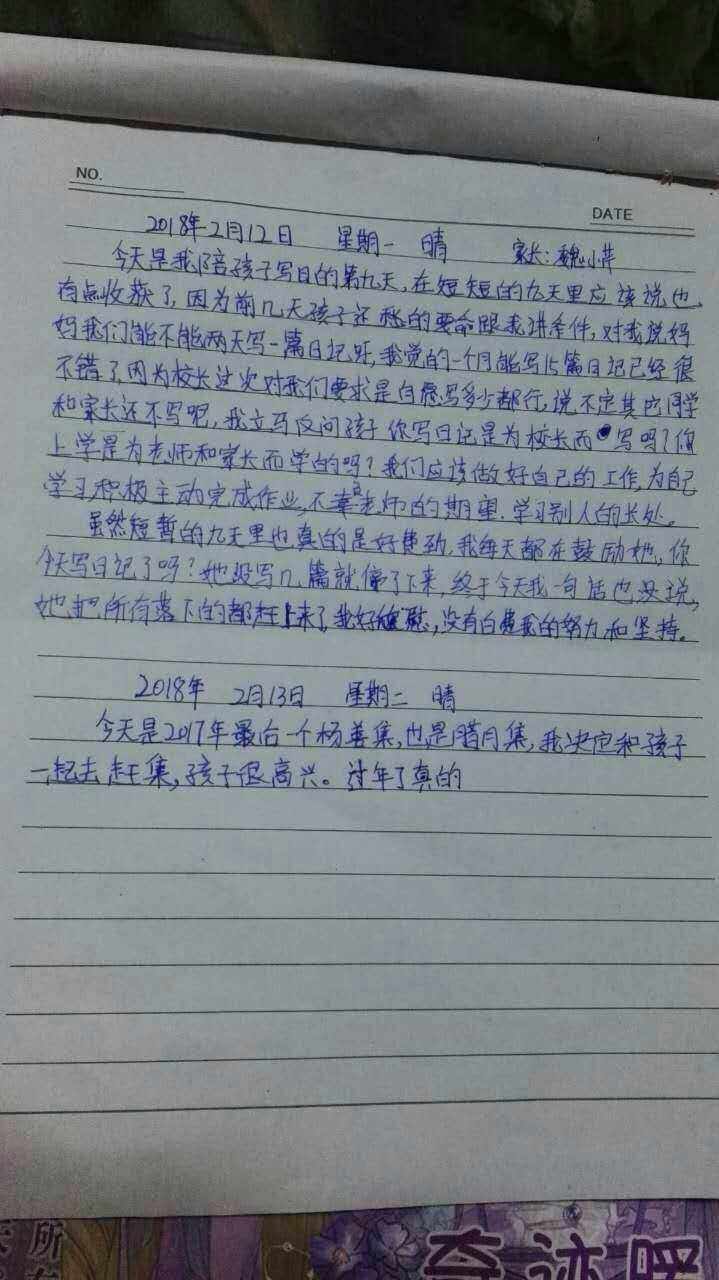 NO.
DATE
2018年2月12日 星期一 晴 家长:魏小芹
今天是我陪孩子写日的第九天,在短短的九天里应该说也
有点收获了,因为前几天孩子还愁的要命跟我讲条件,对我说妈
妈我们能不能两天写一篇日记呀,我觉的一个月能写15篇日记已经很
不错了,因为校长这次对我们要求是自愿写多少都行,说不定其它同学
和家长还不写呢,我立马反问孩子你写日记是为校长而写吗?你
上学是为老师和家长而学的吗?我们应该做好自己的工作,为自己
学习积极主动完成作业,不辜老师的期望.学习别人的长处。
虽然短暂的九天里也真的是好费劲,我每天都在鼓励她,你
今天写日记了吗?她没写几篇就停了下来,终于今天我一句话也没说,
她把所有落下的都赶上来了,我好欣慰,没有白费我的努力和坚持。
2018年 2月13日 星期二 晴
今天是2017年最后一个杨善集,也是腊月集,我决定和孩子
一起去赶集,孩子很高兴。过年了真的
所
奇迹